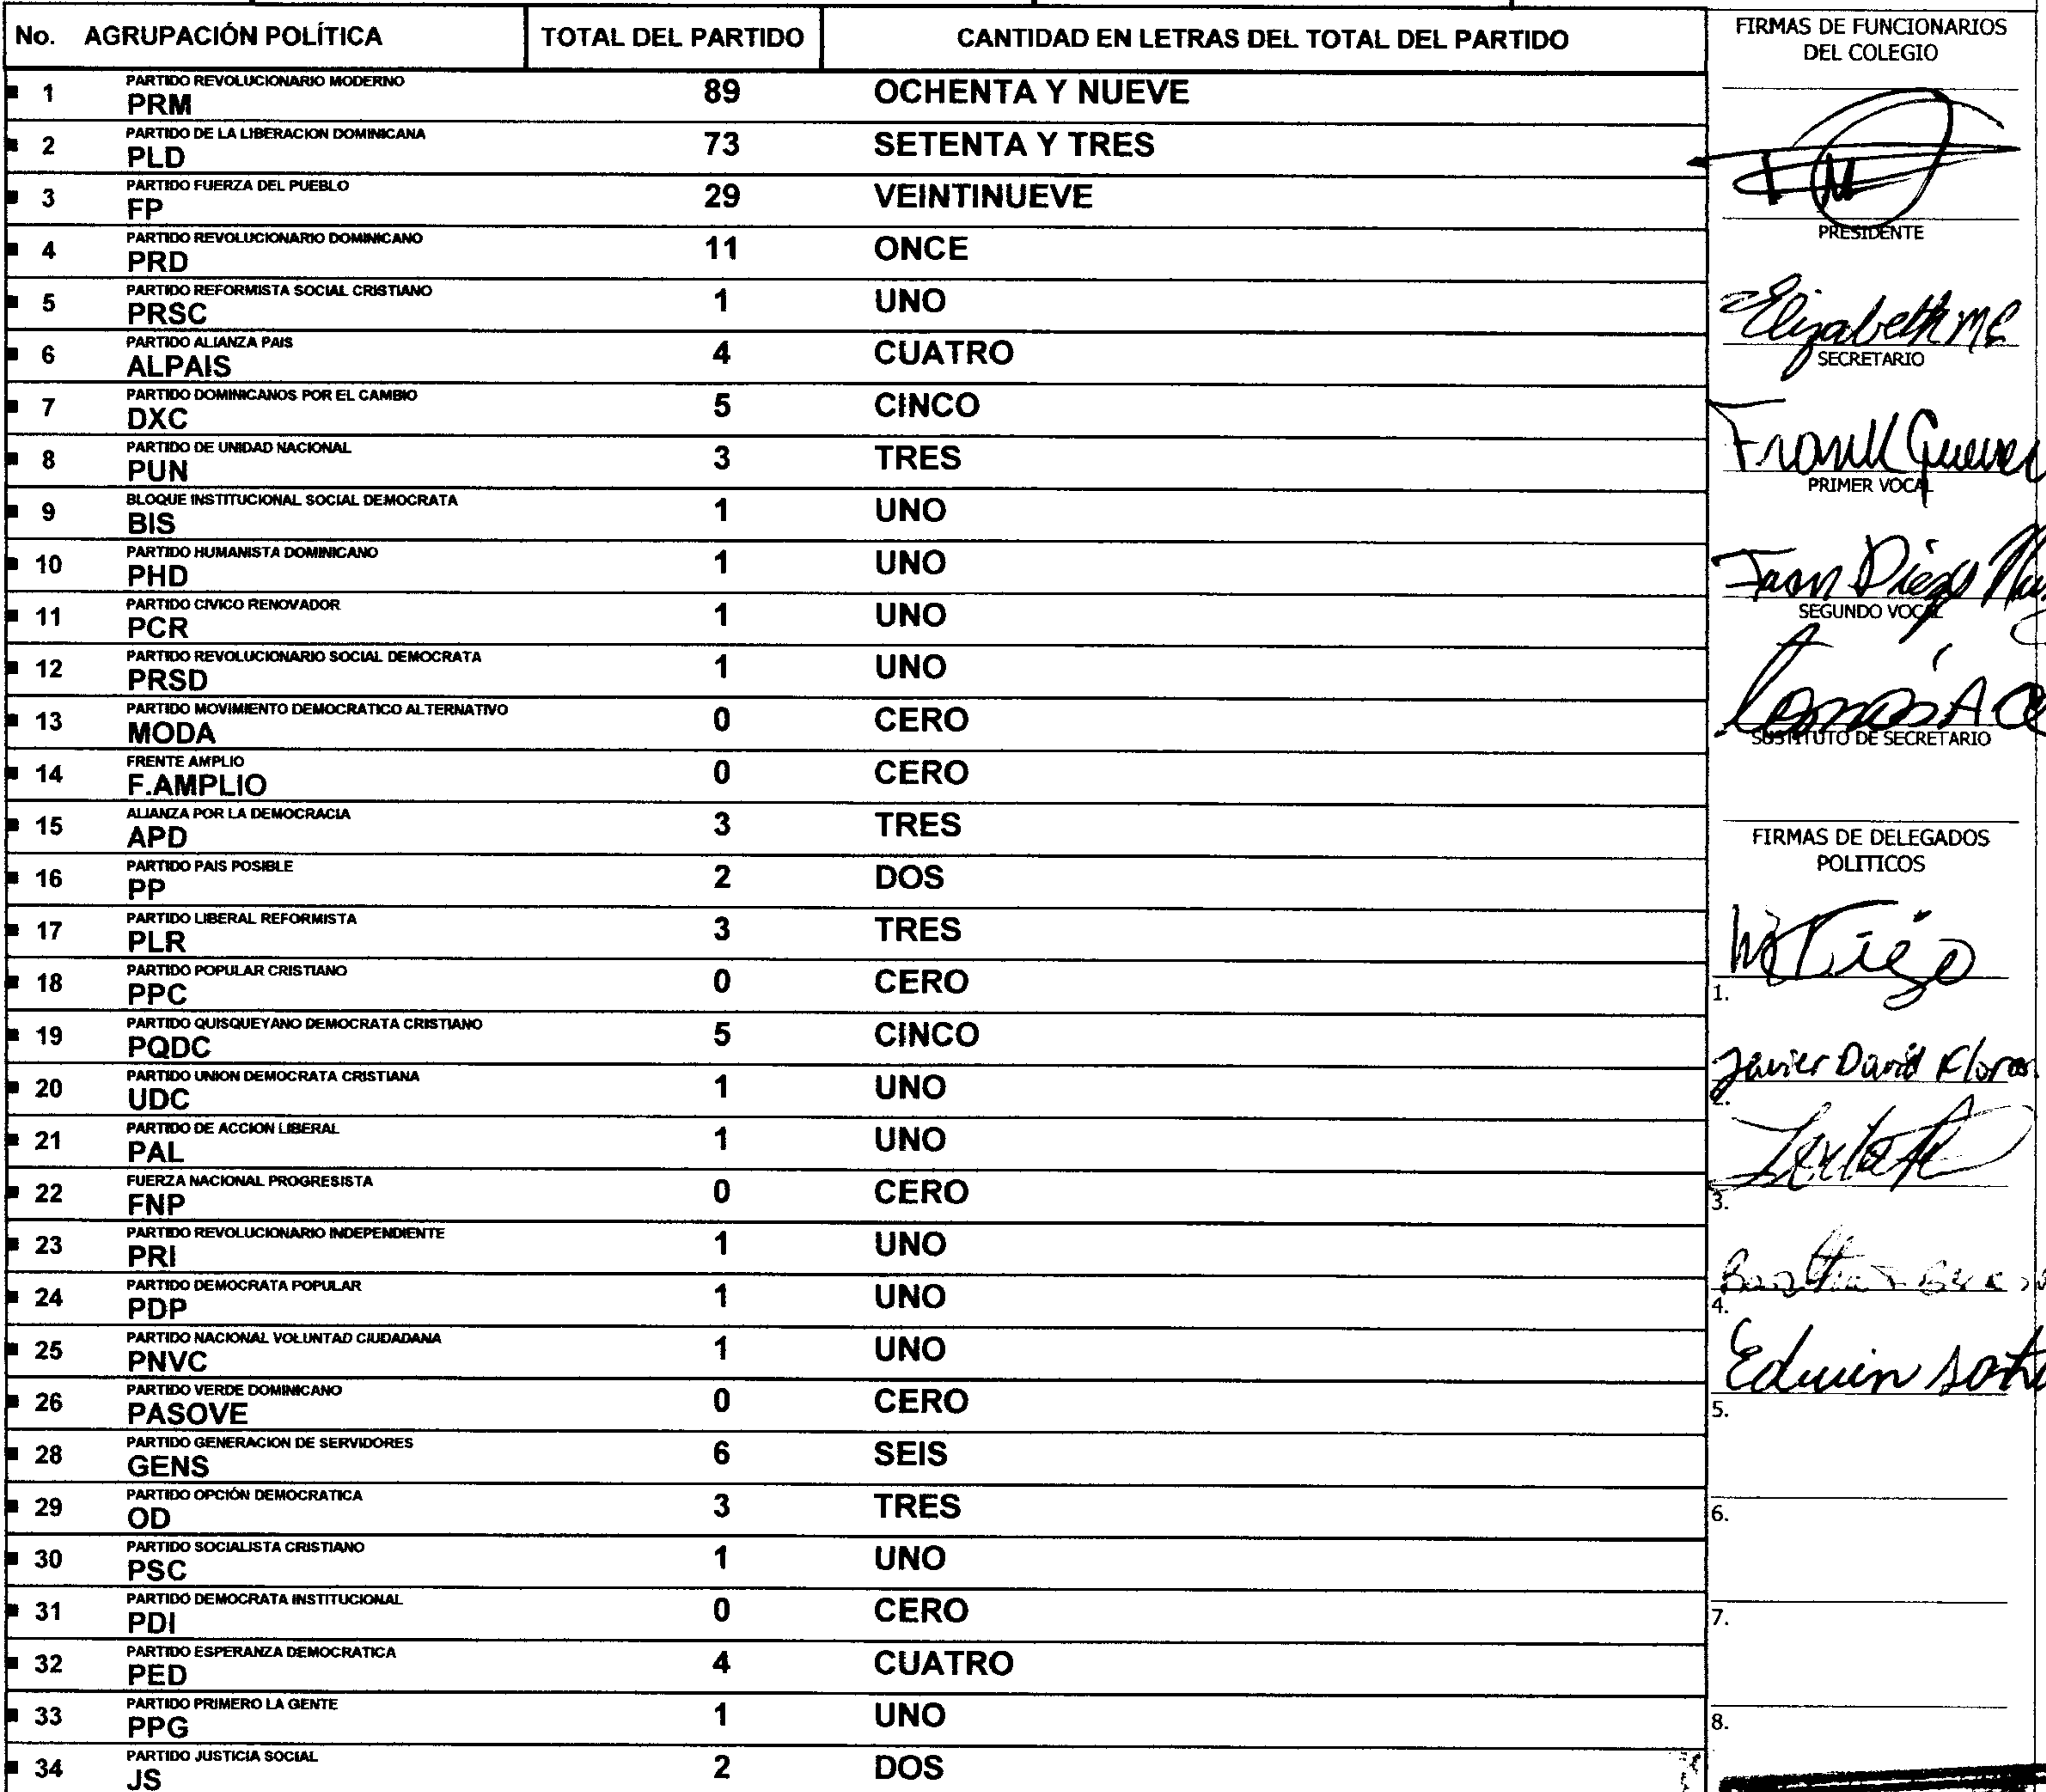 No. AGRUPACIÓN POLÍTICA TOTAL DEL PARTIDO CANTIDAD EN LETRAS DEL TOTAL DEL PARTIDO
PARTIDO REVOLUCIONARIO MODERNO
1 PRM 89 OCHENTA Y NUEVE
PARTIDO DE LA LIBERACION DOMINICANA
2 PLD 73 SETENTA Y TRES
PARTIDO FUERZA DEL PUEBLO
3 FP 29 VEINTINUEVE
PARTIDO REVOLUCIONARIO DOMINICANO
4 PRD 11 ONCE
PARTIDO REFORMISTA SOCIAL CRISTIANO
5 PRSC 1 UNO
PARTIDO ALIANZA PAIS
6 ALPAIS 4 CUATRO
PARTIDO DOMINICANOS POR EL CAMBIO
7 DXC 5 CINCO
PARTIDO DE UNIDAD NACIONAL
8 PUN 3 TRES
BLOQUE INSTITUCIONAL SOCIAL DEMOCRATA
9 BIS 1 UNO
PARTIDO HUMANISTA DOMINICANO
10 PHD 1 UNO
PARTIDO CIVICO RENOVADOR
11 PCR 1 UNO
PARTIDO REVOLUCIONARIO SOCIAL DEMOCRATA
12 PRSD 1 UNO
PARTIDO MOVIMIENTO DEMOCRATICO ALTERNATIVO
13 MODA 0 CERO
FRENTE AMPLIO
14 F.AMPLIO 0 CERO
ALIANZA POR LA DEMOCRACIA
15 APD 3 TRES
PARTIDO PAIS POSIBLE
16 PP 2 DOS
PARTIDO LIBERAL REFORMISTA
17 PLR 3 TRES
PARTIDO POPULAR CRISTIANO
18 PPC 0 CERO
PARTIDO QUISQUEYANO DEMOCRATA CRISTIANO
19 PQDC 5 CINCO
PARTIDO UNION DEMOCRATA CRISTIANA
20 UDC 1 UNO
PARTIDO DE ACCION LIBERAL
21 PAL 1 UNO
FUERZA NACIONAL PROGRESISTA
22 FNP 0 CERO
PARTIDO REVOLUCIONARIO INDEPENDIENTE
23 PRI 1 UNO
PARTIDO DEMOCRATA POPULAR
24 PDP 1 UNO
PARTIDO NACIONAL VOLUNTAD CIUDADANA
25 PNVC 1 UNO
PARTIDO VERDE DOMINICANO
26 PASOVE 0 CERO
PARTIDO GENERACION DE SERVIDORES
28 GENS 6 SEIS
PARTIDO OPCIÓN DEMOCRATICA
29 OD 3 TRES
PARTIDO SOCIALISTA CRISTIANO
30 PSC 1 UNO
PARTIDO DEMOCRATA INSTITUCIONAL
31 PDI 0 CERO
PARTIDO ESPERANZA DEMOCRATICA
32 PED 4 CUATRO
PARTIDO PRIMERO LA GENTE
33 PPG 1 UNO
PARTIDO JUSTICIA SOCIAL
34 JS 2 DOS
FIRMAS DE FUNCIONARIOS
DEL COLEGIO
PRESIDENTE
Elizabeth
SECRETARIO
Frank
PRIMER VOCAL
Diego
SEGUNDO VOCAL
SUSTITUTO DE SECRETARIO
FIRMAS DE DELEGADOS
POLITICOS
1.
Javier David
2.
3.
4.
Edwin
5.
6.
7.
8.